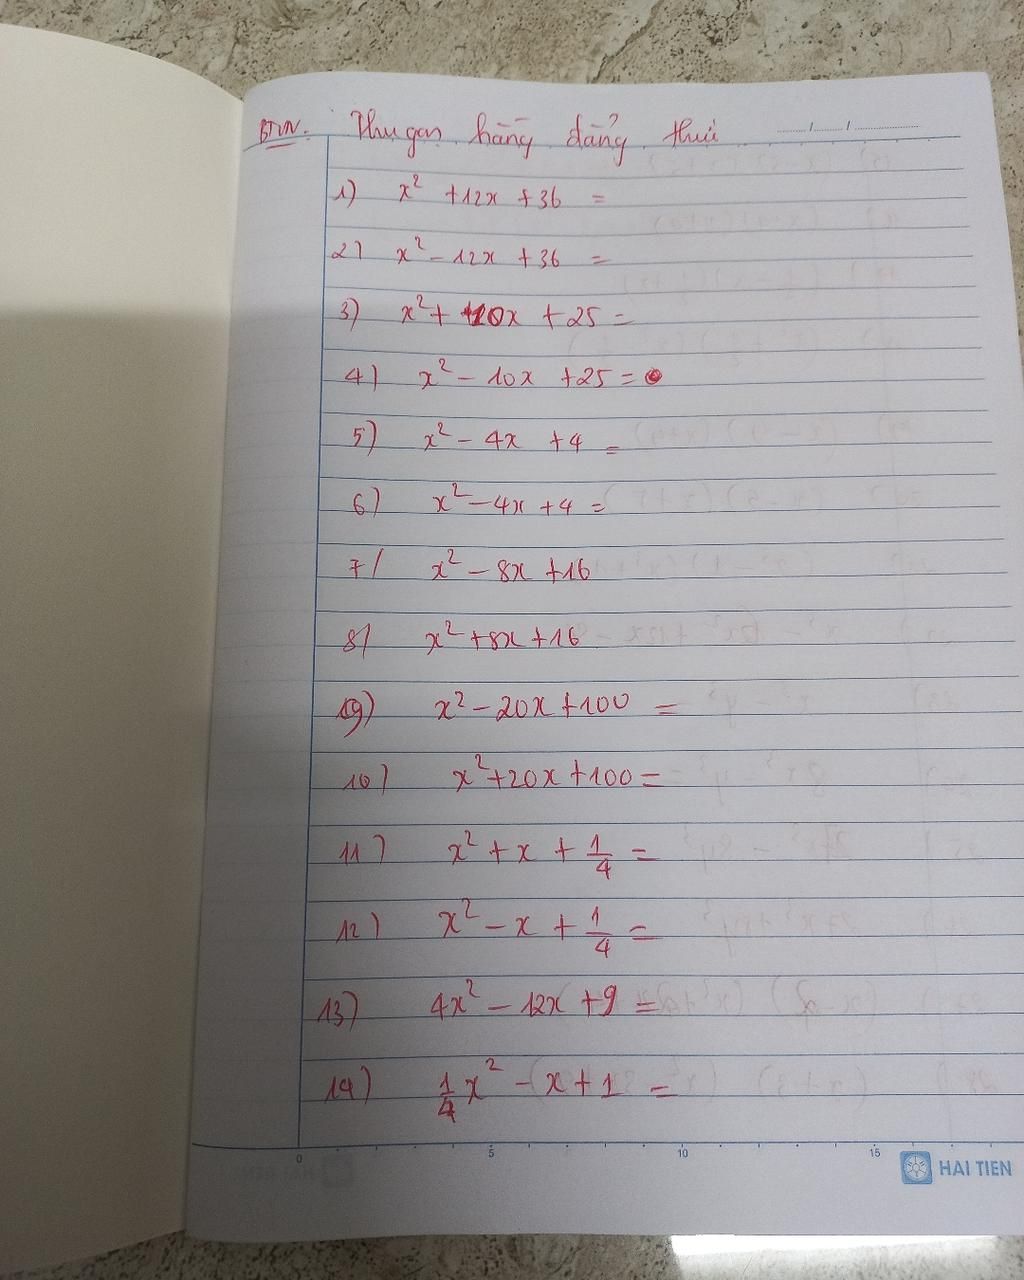 BTVN. Thu gọn hằng đẳng thức
1) x² + 12x + 36 =
2) x² - 12x + 36 =
3) x² + 10x + 25 =
4) x² - 10x + 25 =
5) x² - 4x + 4 =
6) x² - 4x + 4 =
7/ x² - 8x + 16
8/ x² + 8x + 16
9) x² - 20x + 100 =
10) x² + 20x + 100 =
11) x² + x + 1/4 =
12) x² - x + 1/4 =
13) 4x² - 12x + 9 =
14) 1/4 x² - x + 1 =
0 5 10 15
HAI TIEN